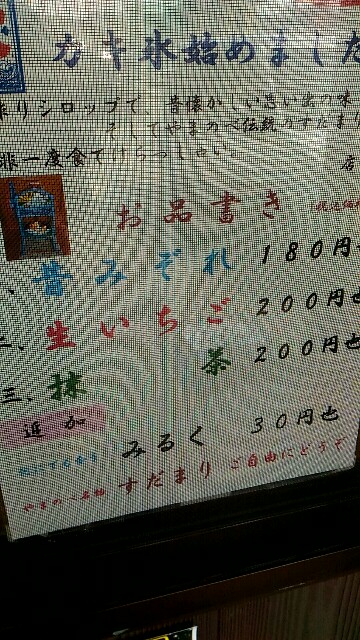 カキ氷始めました
りシロップで、昔懐かしい思い出の味
そしてやまのべ伝統のすだまり
非一度食てけらっしゃい。
店
お品書き
昔みぞれ 180円也
二、生いちご 200円也
三、抹茶 200円也
追加
みるく 30円也
やまのべ名物 すだまり ご自由にどうぞ